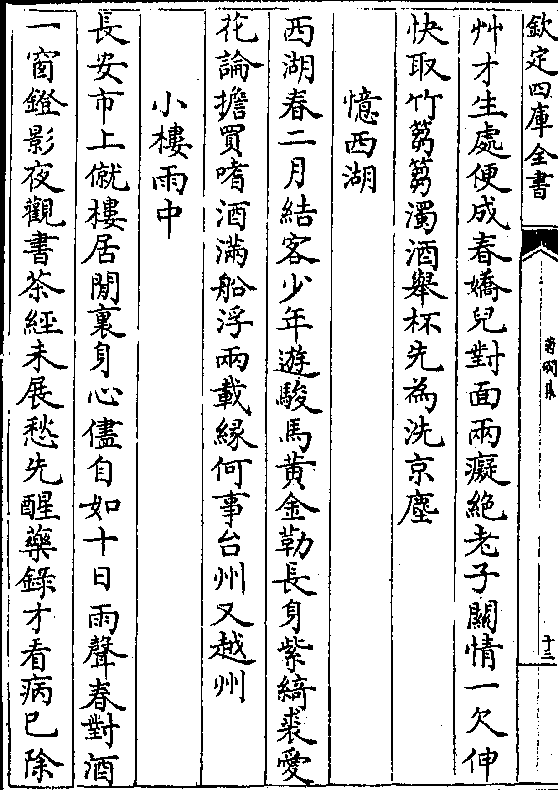 欽定四庫全書
菊磵集
十三
艸才生處便成春嬌兒對面兩癡絶老子關情一欠伸
快取竹蒭蒭濁酒舉杯先為洗京塵
憶西湖
西湖春二月結客少年遊駿馬黄金勒長身紫綺裘愛
花論擔買嗜酒滿船浮兩載緣何事台州又越州
小樓雨中
長安市上僦樓居閒裏身心儘自如十日雨聲春對酒
一窗鐙影夜觀書茶經未展愁先醒藥錄才看病已除